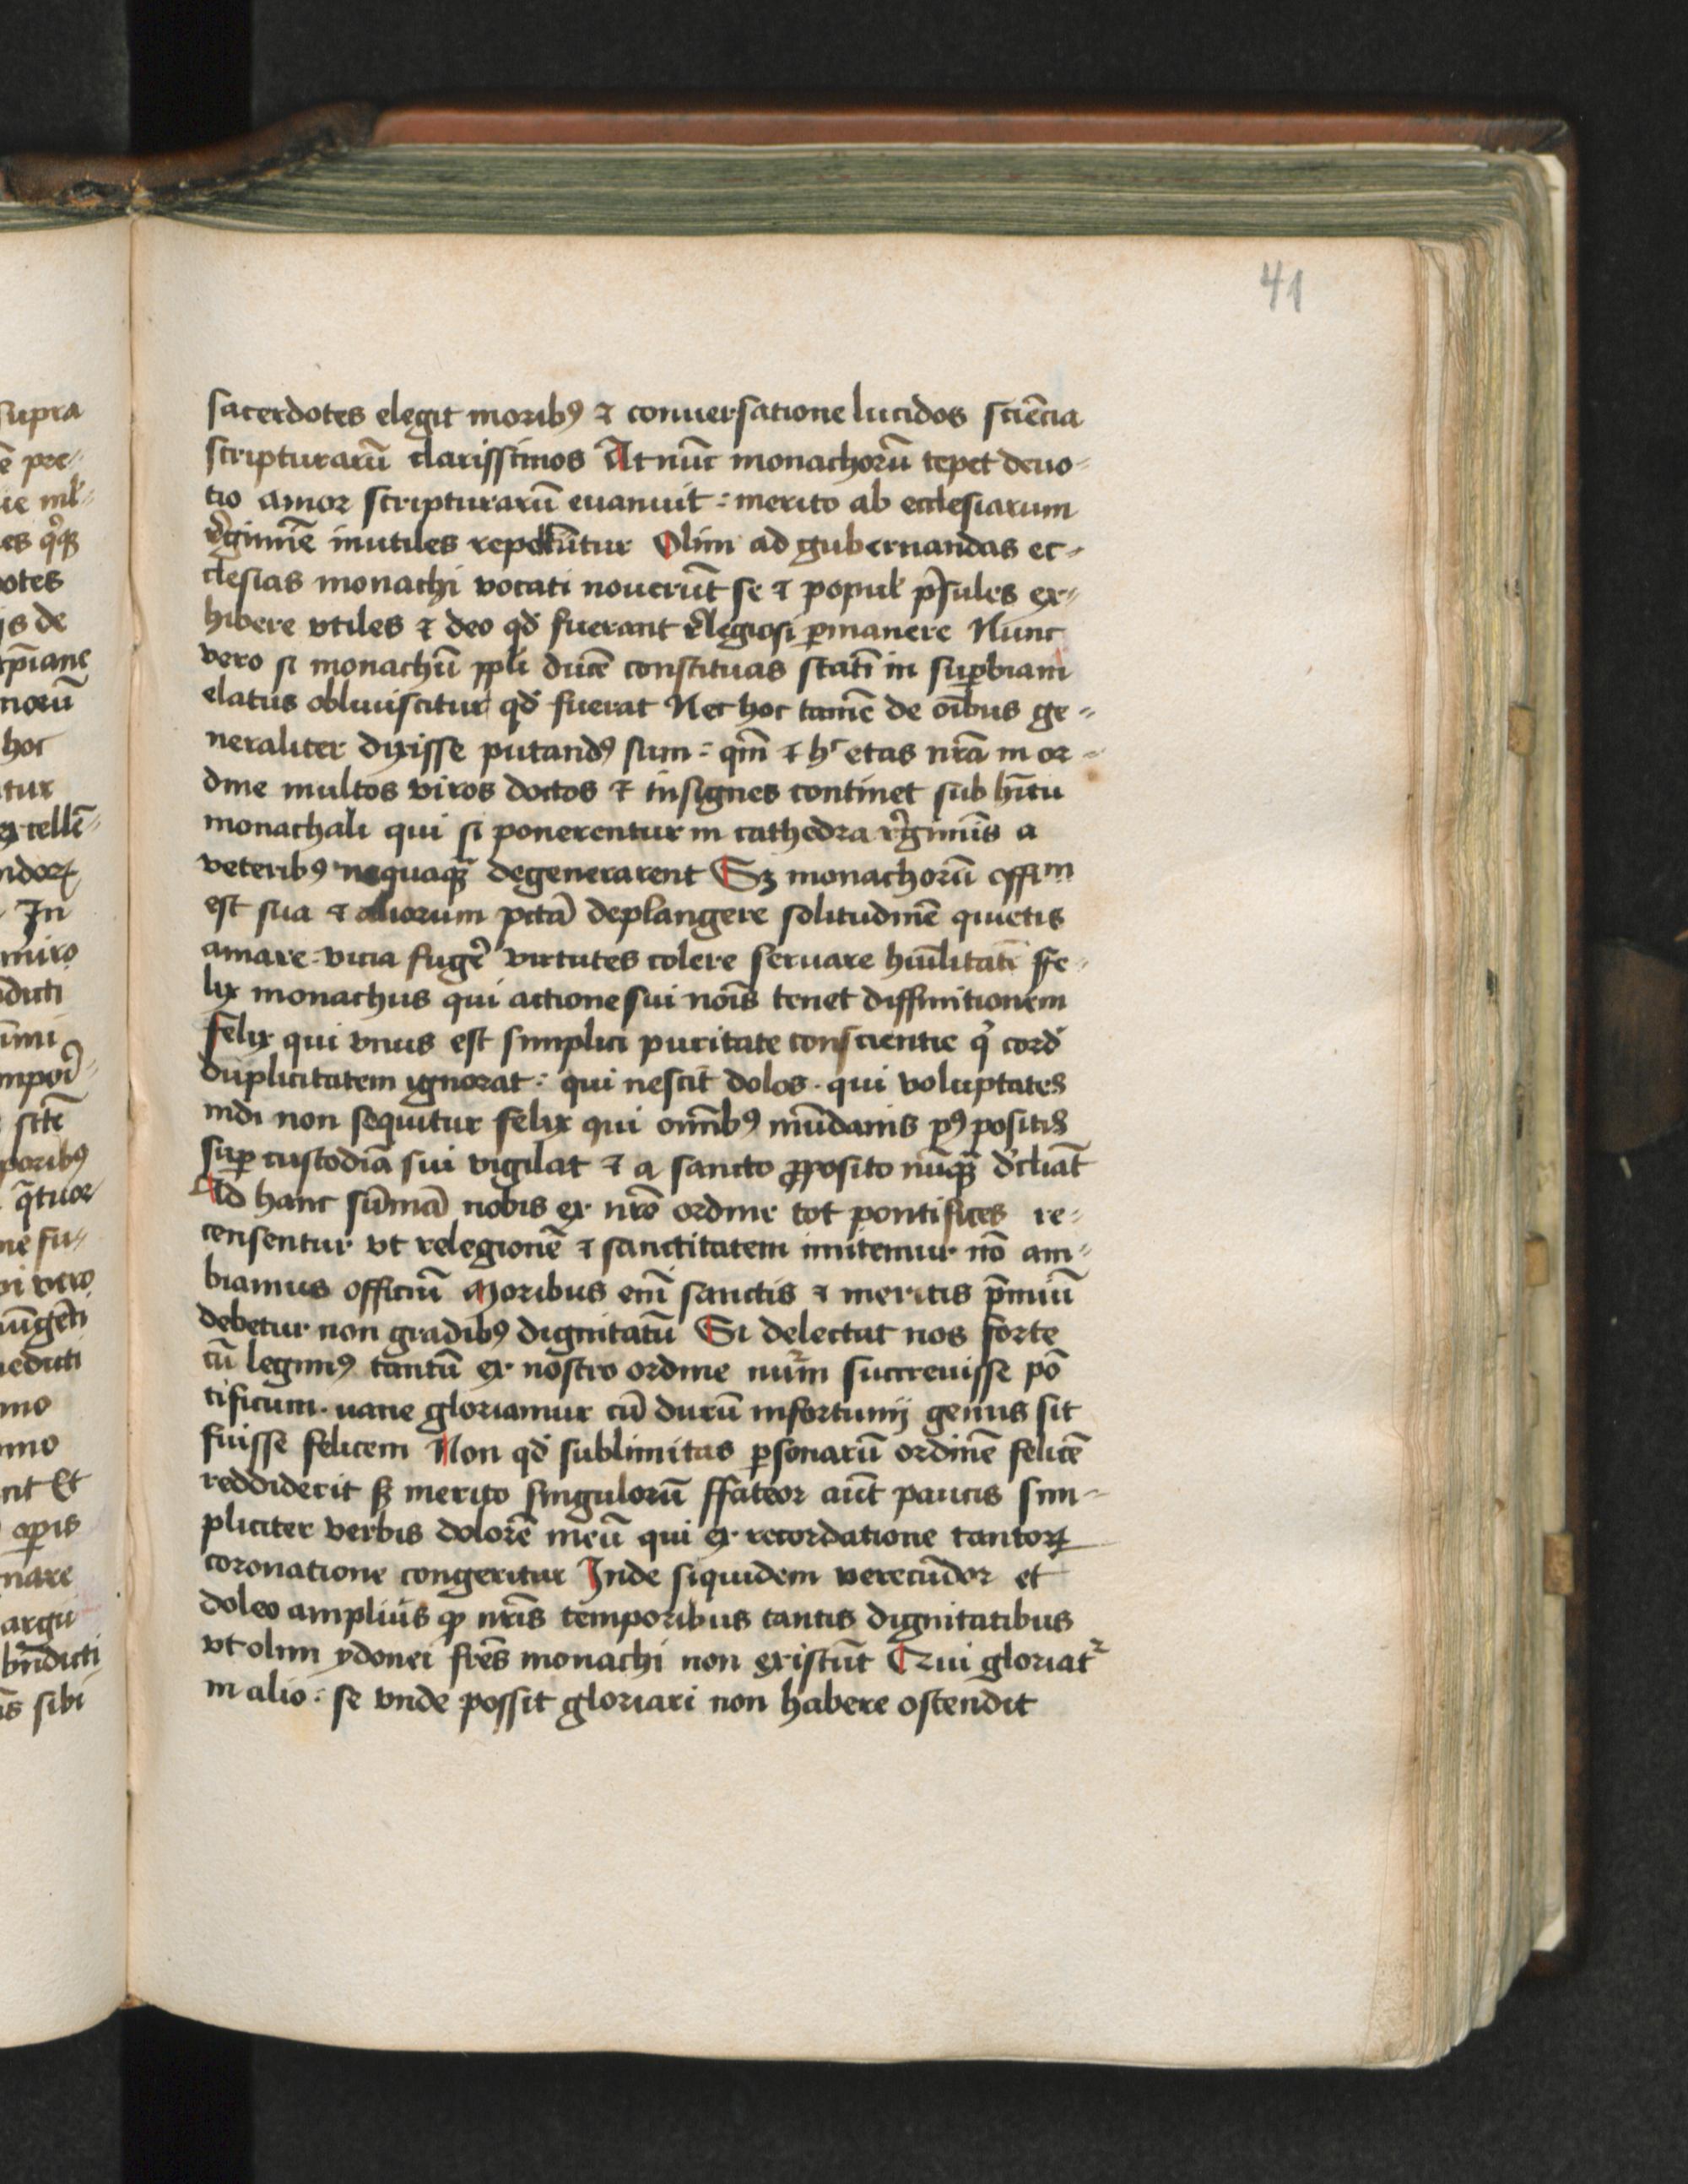 41
sacerdotes elegit moribꝰ ⁊ conuersatione lucidos sciēcia
scripturarū clarissimos At nūc monachorū tepet deuo-
tio amor scripturarū euanuit : merito ab ecclesiarum
rͤgimīe inutiles repellūtur Olim ad gubernandas ec-
clesias monachi vocati nouerūt se ⁊ popul' p̄sules ex-
hibere vtiles ⁊ deo qd' fuerant rͤlegiosi ꝑmanere Nunc
vero si monachū ppli ducē constituas statī in suꝑbiam
elatus obliuiscitur qd' fuerat Nec hoc tamē de oībus ge-
neraliter dixisse putandꝰ sum : qm̄ ⁊ hͨ etas nrā in or-
dine multos viros doctos ⁊ insignes continet sub hītu
monachali qui si ponerentur in cathedra rͤgiminīs a
veteribꝰ nequaqꝫ degenerarent Sꝫ monachorū offim
est sua ⁊ aliorum pctā deplangere solitudinē quietis
amare . vicia fugeͬ virtutes colere seruare hūilitatī ffe-
lix monachus qui actione sui noīs tenet diffinitionem
felix qui vnus est simplici puritate conscientie qͥ cord'
duplicitatem ignorat : qui nescit dolos . qui voluptates
mdi non sequitur felix qui omībꝰ mūdanis pꝰpositis
suꝑ custodiā sui vigilat ⁊ a sancto ꝓposito nūqꝫ d'cliāt
Ad hanc sūmā nobis ex nrō ordine tot pontifices re-
censentur vt relegionē ⁊ sanctitatem imitemur nō am-
biamus officiū Moribus enī sanctis ⁊ meritis p̄miū
debetur non gradibꝰ dignitatū Si delectat nos forte
cū legimꝰ tantū ex nostro ordine nūm succreuisse pō
tificum . uane gloriamur cū durū infortunij genus sit
fuisse felicem Non qd' sublimitas ꝑsonarū ordinē felicē
reddiderit sꝫ merito singulorū ffateor aūt paucis sim-
pliciter verbis dolorē meū qui ex recordatione tantoꝝ
coronatione congeritur Inde siquidem verecūdor et
doleo amplius ꝙ nrīs temporibus tantis dignitatibus
vt olim ydonei frēs monachi non existūt Qui gloriatᷣ
in alio : se vnde possit gloriari non habere ostendit